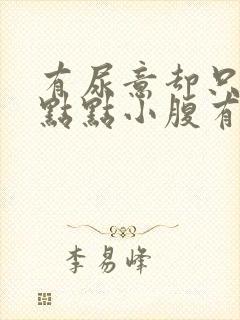 有尿意却只
點點小腹有
李易峰